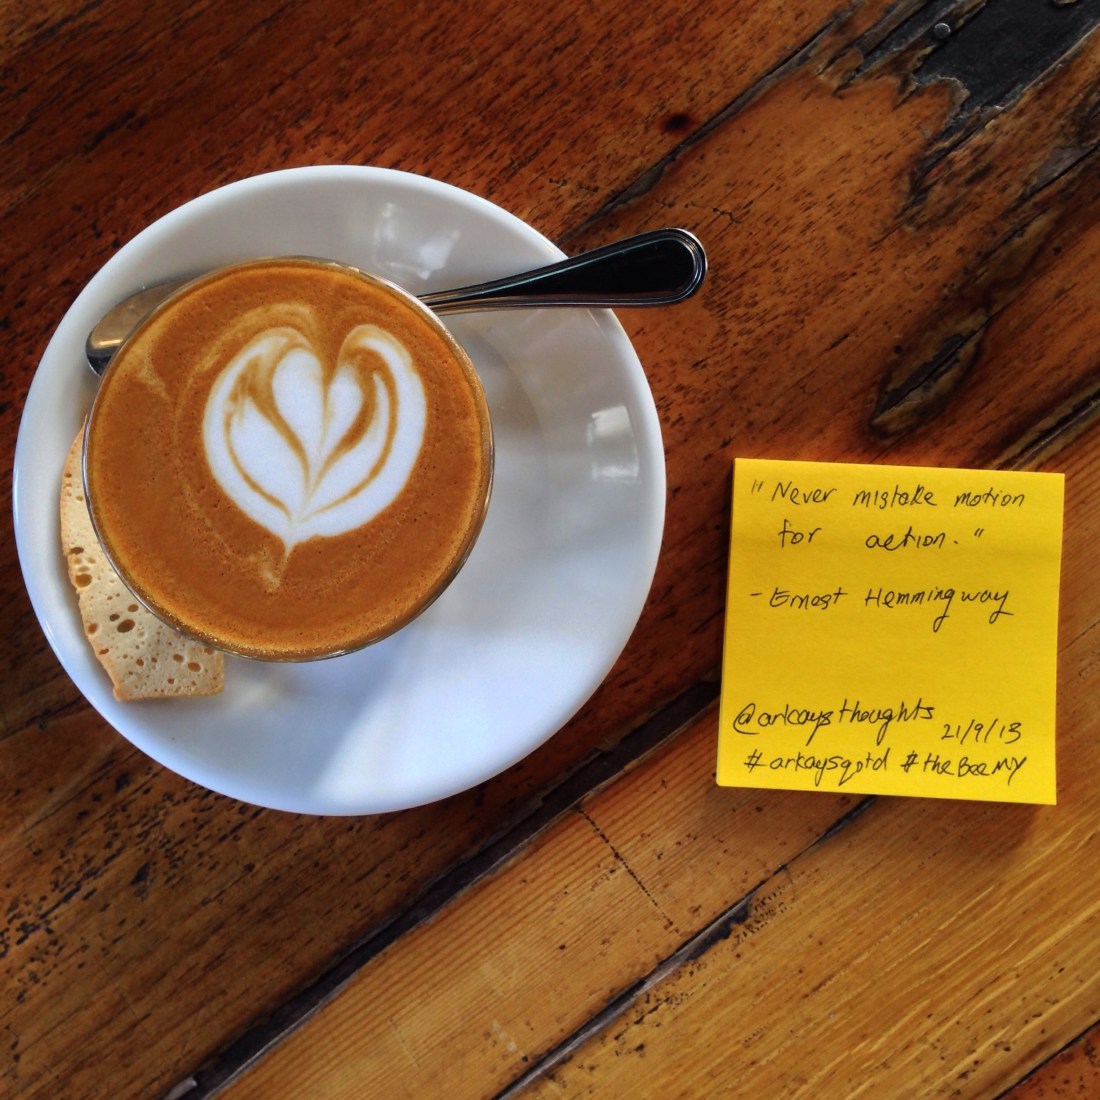 "Never mistake motion
for action."
- Ernest Hemmingway
@arkaysthoughts 21/9/13
#arkaysqotd #theBeeMY